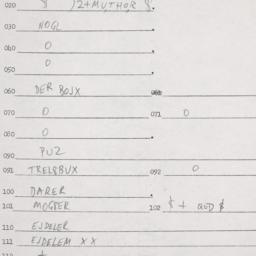 020 $ )2+MUTHOR $.
030 NOGL
040 0
050 0
060 DER BOJX
070 0 071 0
080 0
090 PUZ
091 TRELSBUX 092 0
100 DARER
101 MOGTER 102 $ + QUD $
110 EJDELER
111 EJDELEM XX